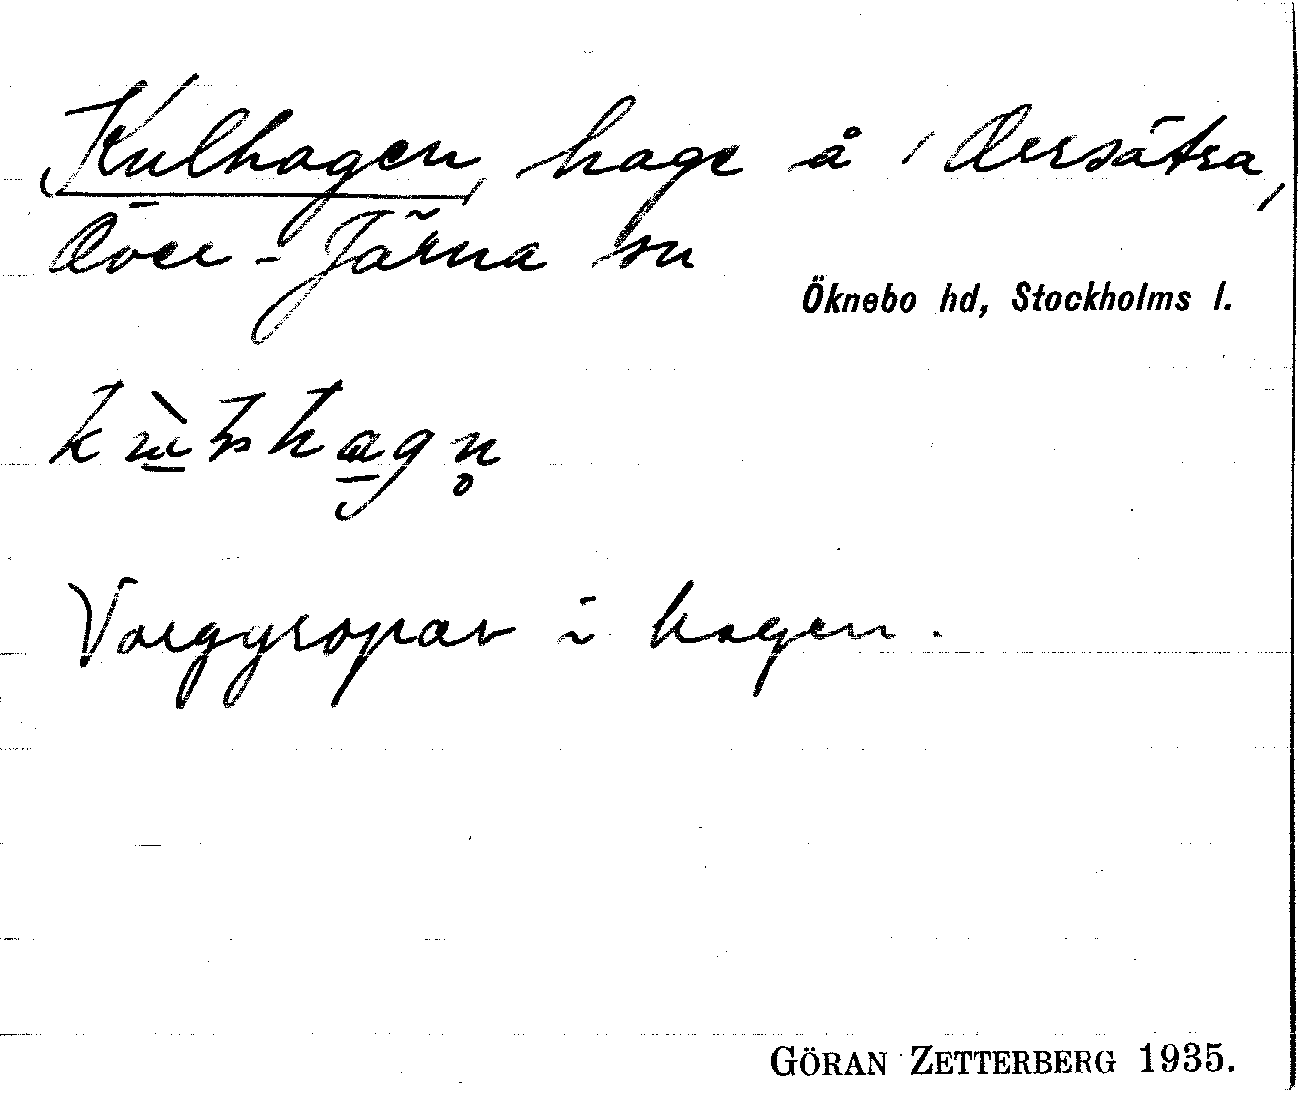 Kulhagen, hage å Oersätra,
Över-Järna sn
Öknebo hd, Stockholms l.
Varggropar i hagen.
GÖRAN ZETTERBERG 1935.